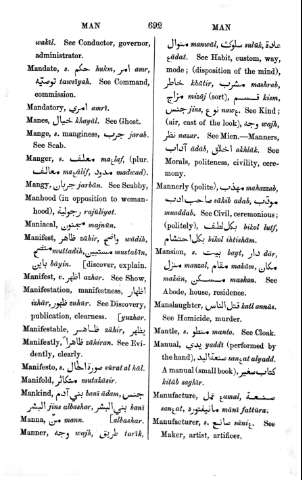 MAN 692 MAN
wakíl. See Conductor, governor,
administrator.
Mandate, s. حكم hukm, امر amr,
توصيه tawsíyah. See Command,
commission.
Mandatory, امري amrí.
Manes, خيال khayál. See Ghost.
Mange, s. manginess, جرب jarab.
See Scab.
Manger, معلف maʿlaf, (plur.
معالف maʿálif, مدود
Mangy, جربان jarbán. See Scabby.
Manhood (in opposition to woman-
hood), رجولية rajúlíyat.
Maniacal, مجنون majnún.
Manifest, ظاهر záhir, واضح wádih,
mustabín,
باين báyin. (discover, explain.
Manifest, v. اظهر azhar. See Show,
Manifestation, manifestness, اظهار
izhár, ظهور zuhúr. See Discovery,
publication, clearness. [yazhar.
Manifestable, ظاهر záhir, يظهر
Manifestly, ظاهراً záhiran. See Evi-
dently, clearly.
Manifesto, s. صورة الحال súrat al hál.
Manifold, متكاثر mutakásir.
Mankind, بني آدم baní ádam, جنس
البشر jins albashar, بني البشر baní
Manna, من mann. [albashar.
Manner, وجه wajh, طريق tarík,
منوال manwál, سلوك sulúk, عادة
ʿádat. See Habit, custom, way,
mode; (disposition of the mind),
خاطر khátir, مشرب mashrab,
مزاج mizáj (sort), قسم kism,
جنس jins, نوع nawʿ. See Kind;
(air, cast of the look), وجه wajh,
نظر nazar. See Mien.—Manners,
آداب ádáb, اخلاق akhlák. See
Morals, politeness, civility, cere-
mony.
Mannerly (polite), مهذب mahazzab,
صاحب ادب sáhib adab, مودب
muaddab. See Civil, ceremonious;
(politely), بكل لطف bikol lutf,
بكل احتشام bikol ihtishám.
Mansion, s. بيت bayt, دار dár,
منزل manzal, مقام makám, مكان
makán, مسكن maskan. See
Abode, house, residence.
Manslaughter, قتل الناس katl annás.
See Homicide, murder.
Mantle, s. منطو manto. See Cloak.
Manual, يدي yaddí (performed by
the hand), صنعة اليد sanʿat alyadd.
A manual (small book), كتاب صغير
kitáb saghír.
Manufacture, عمل ʿamal, صنعة
sanʿat, مانيفتورة máni fattúra.
Manufacturer, s. صانع sániʿ. See
Maker, artist, artificer.